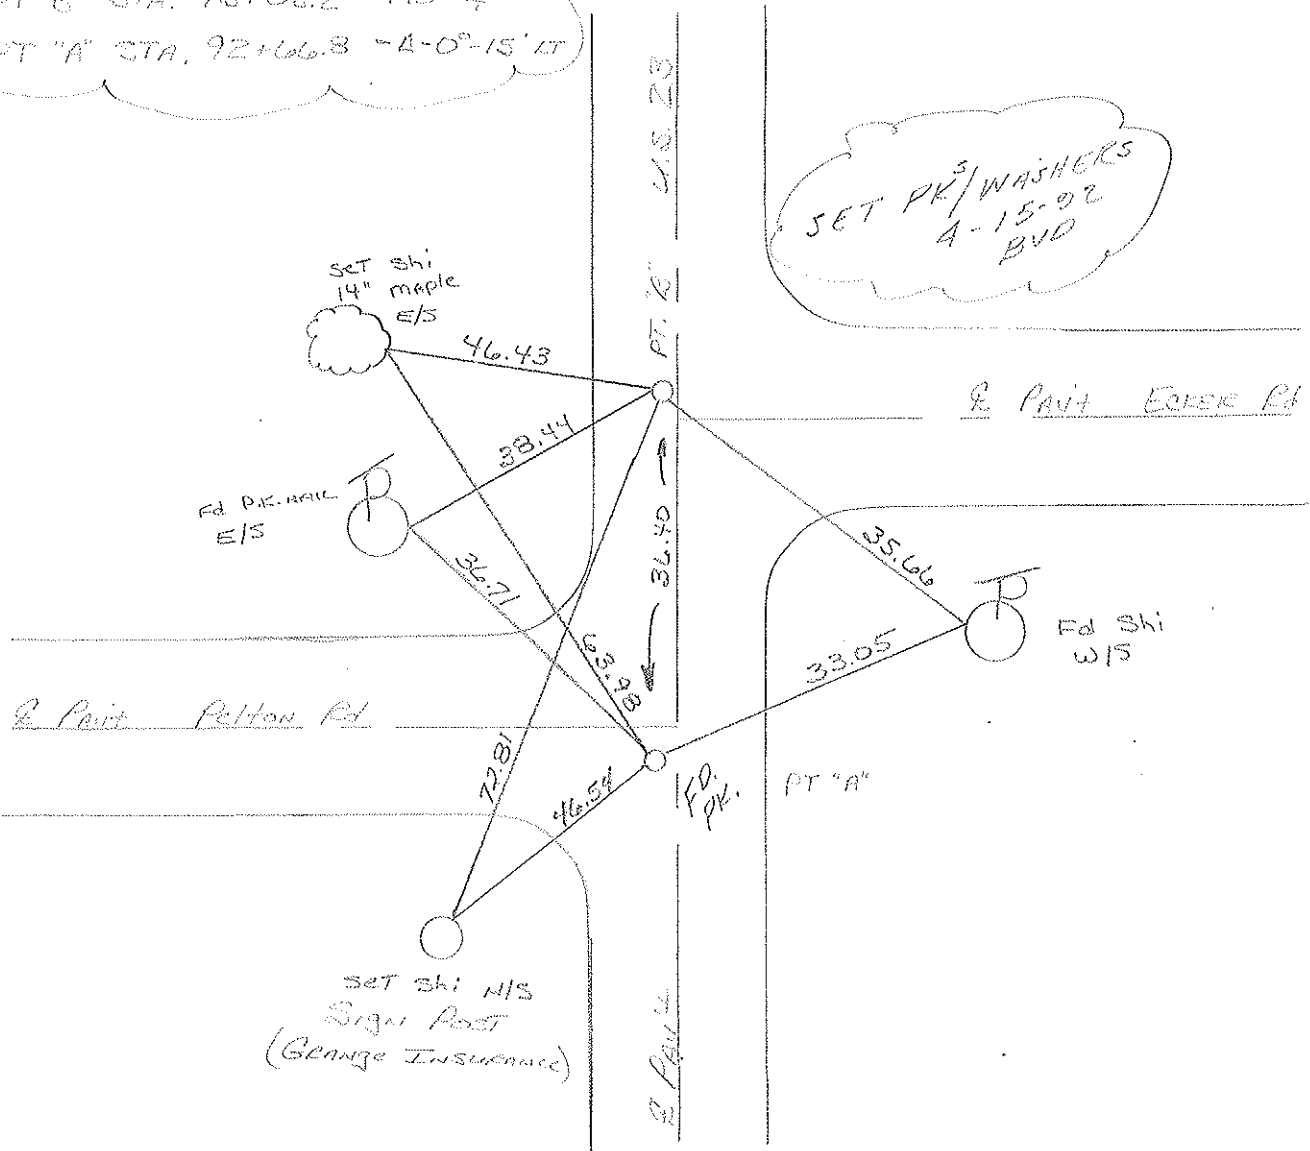 PT "A" STA. 92+66.8 -Δ-0°-15' LT
U.S. 23
SET PKS/WASHERS
4-15-92
BVD
SET Shi
14" MAPLE
E/S
46.43
PT.
38.44
℄ PAV'T
Rd
Fd P.K. NAIL
E/S
36.71
36.40
35.66
Fd Shi
W/S
63.98
33.05
℄ PAV'T Pelton Rd
72.81
46.54
FD.
PK.
PT "A"
SET Shi N/S
Sign Post
(Grange Insurance)
℄